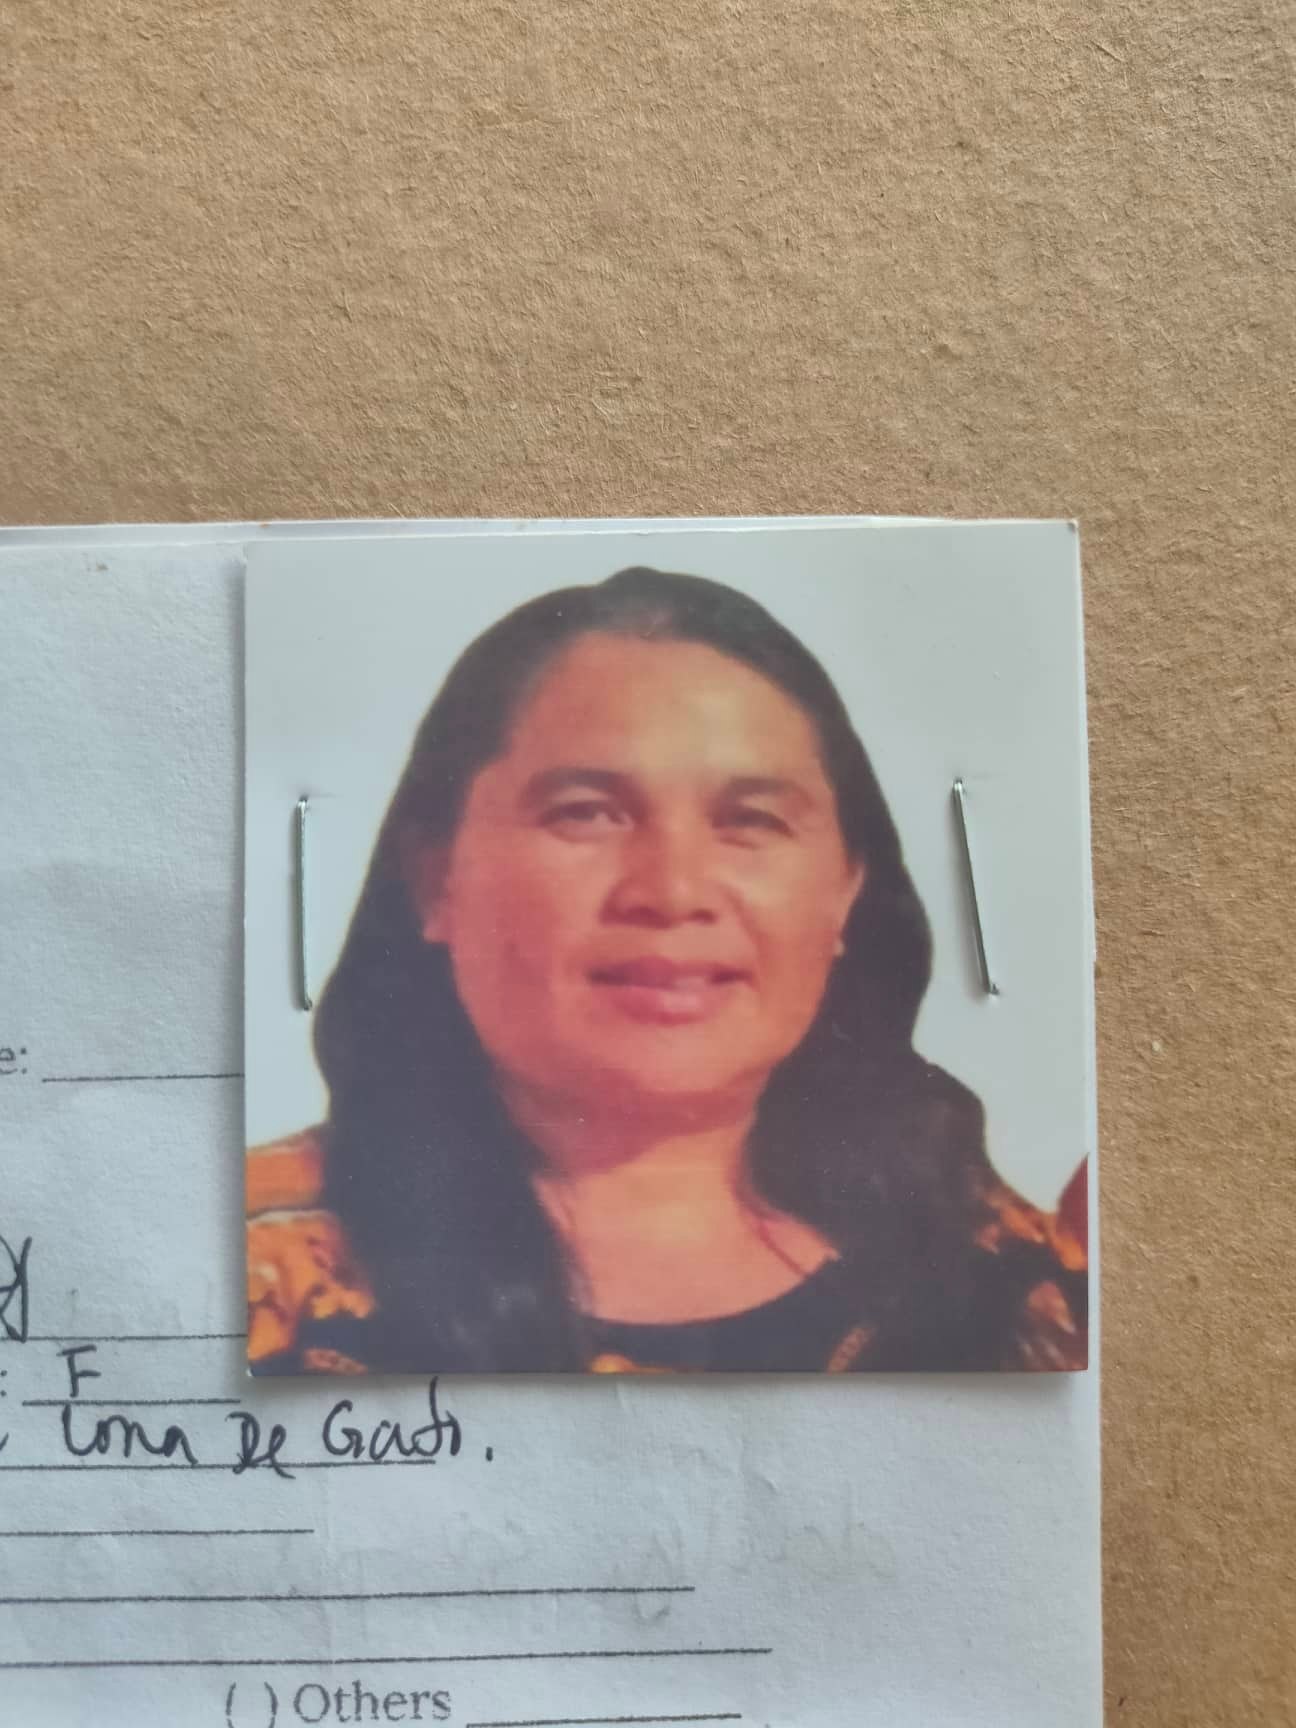 e:
: F
Loma De Gato.
( ) Others